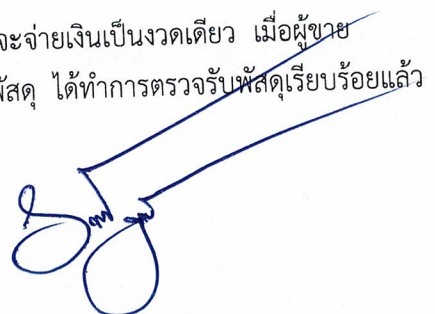 จะจ่ายเงินเป็นงวดเดียว เมื่อผู้ขาย
พัสดุ ได้ทำการตรวจรับพัสดุเรียบร้อยแล้ว